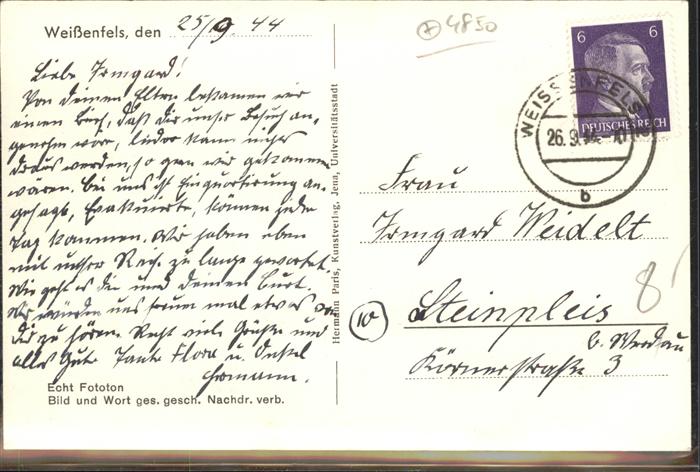 Weißenfels, den 25/9. 44
Liebe Irmgard!
Von deinen Eltern bekamen wir
einen Brief, daß dir unser Besuch an-
genehm wär, leider kann nichts
draus werden, so gern wir gekommen
wären. Bei uns ist Einquartierung an-
gesagt, Evakuierte, können jeden
Tag kommen. Wir haben eben
mit unsrer Reise zu lange gewartet.
Wie geht es dir und deinem Kurt.
Wir würden uns freuen mal etwas von
dir zu hören. Recht viele Grüße und
alles Gute Tante Flora u. Onkel
Hermann.
Echt Fototon
Bild und Wort ges. gesch. Nachdr. verb.
Hermann Paris, Kunstverlag, Jena, Universitätsstadt
4850
6 6
DEUTSCHES REICH
WEISSENFELS
26.9.44
b
Frau
Irmgard Weidelt
10
Steinpleis
b. Werdau
Körnerstraße 3
8